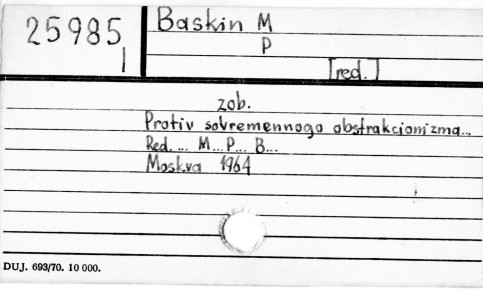 25985
1
Baskin M
P
[red.]
zob.
Protiv sovremennogo abstrakcionizma...
Red. ... M... P... B...
Moskva 1964
DUJ. 693/70. 10 000.